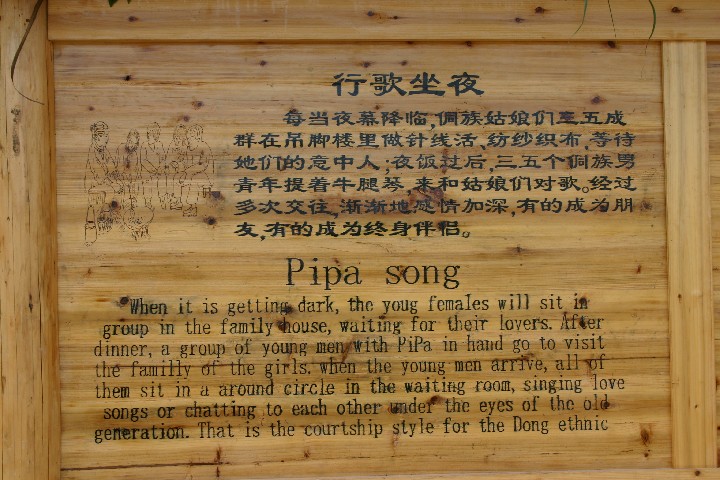 行歌坐夜
每当夜幕降临,侗族姑娘们三五成
群在吊脚楼里做针线活,纺纱织布,等待
她们的意中人;夜饭过后,三五个侗族男
青年提着牛腿琴,来和姑娘们对歌。经过
多次交往,渐渐地感情加深,有的成为朋
友,有的成为终身伴侣。
Pipa song
When it is getting dark, the youg females will sit in
group in the family house, waiting for their lovers. After
dinner, a group of young men with PiPa in hand go to visit
the familly of the girls. when the young men arrive, all of
them sit in a around circle in the waiting room, singing love
songs or chatting to each other under the eyes of the old
generation. That is the courtship style for the Dong ethnic